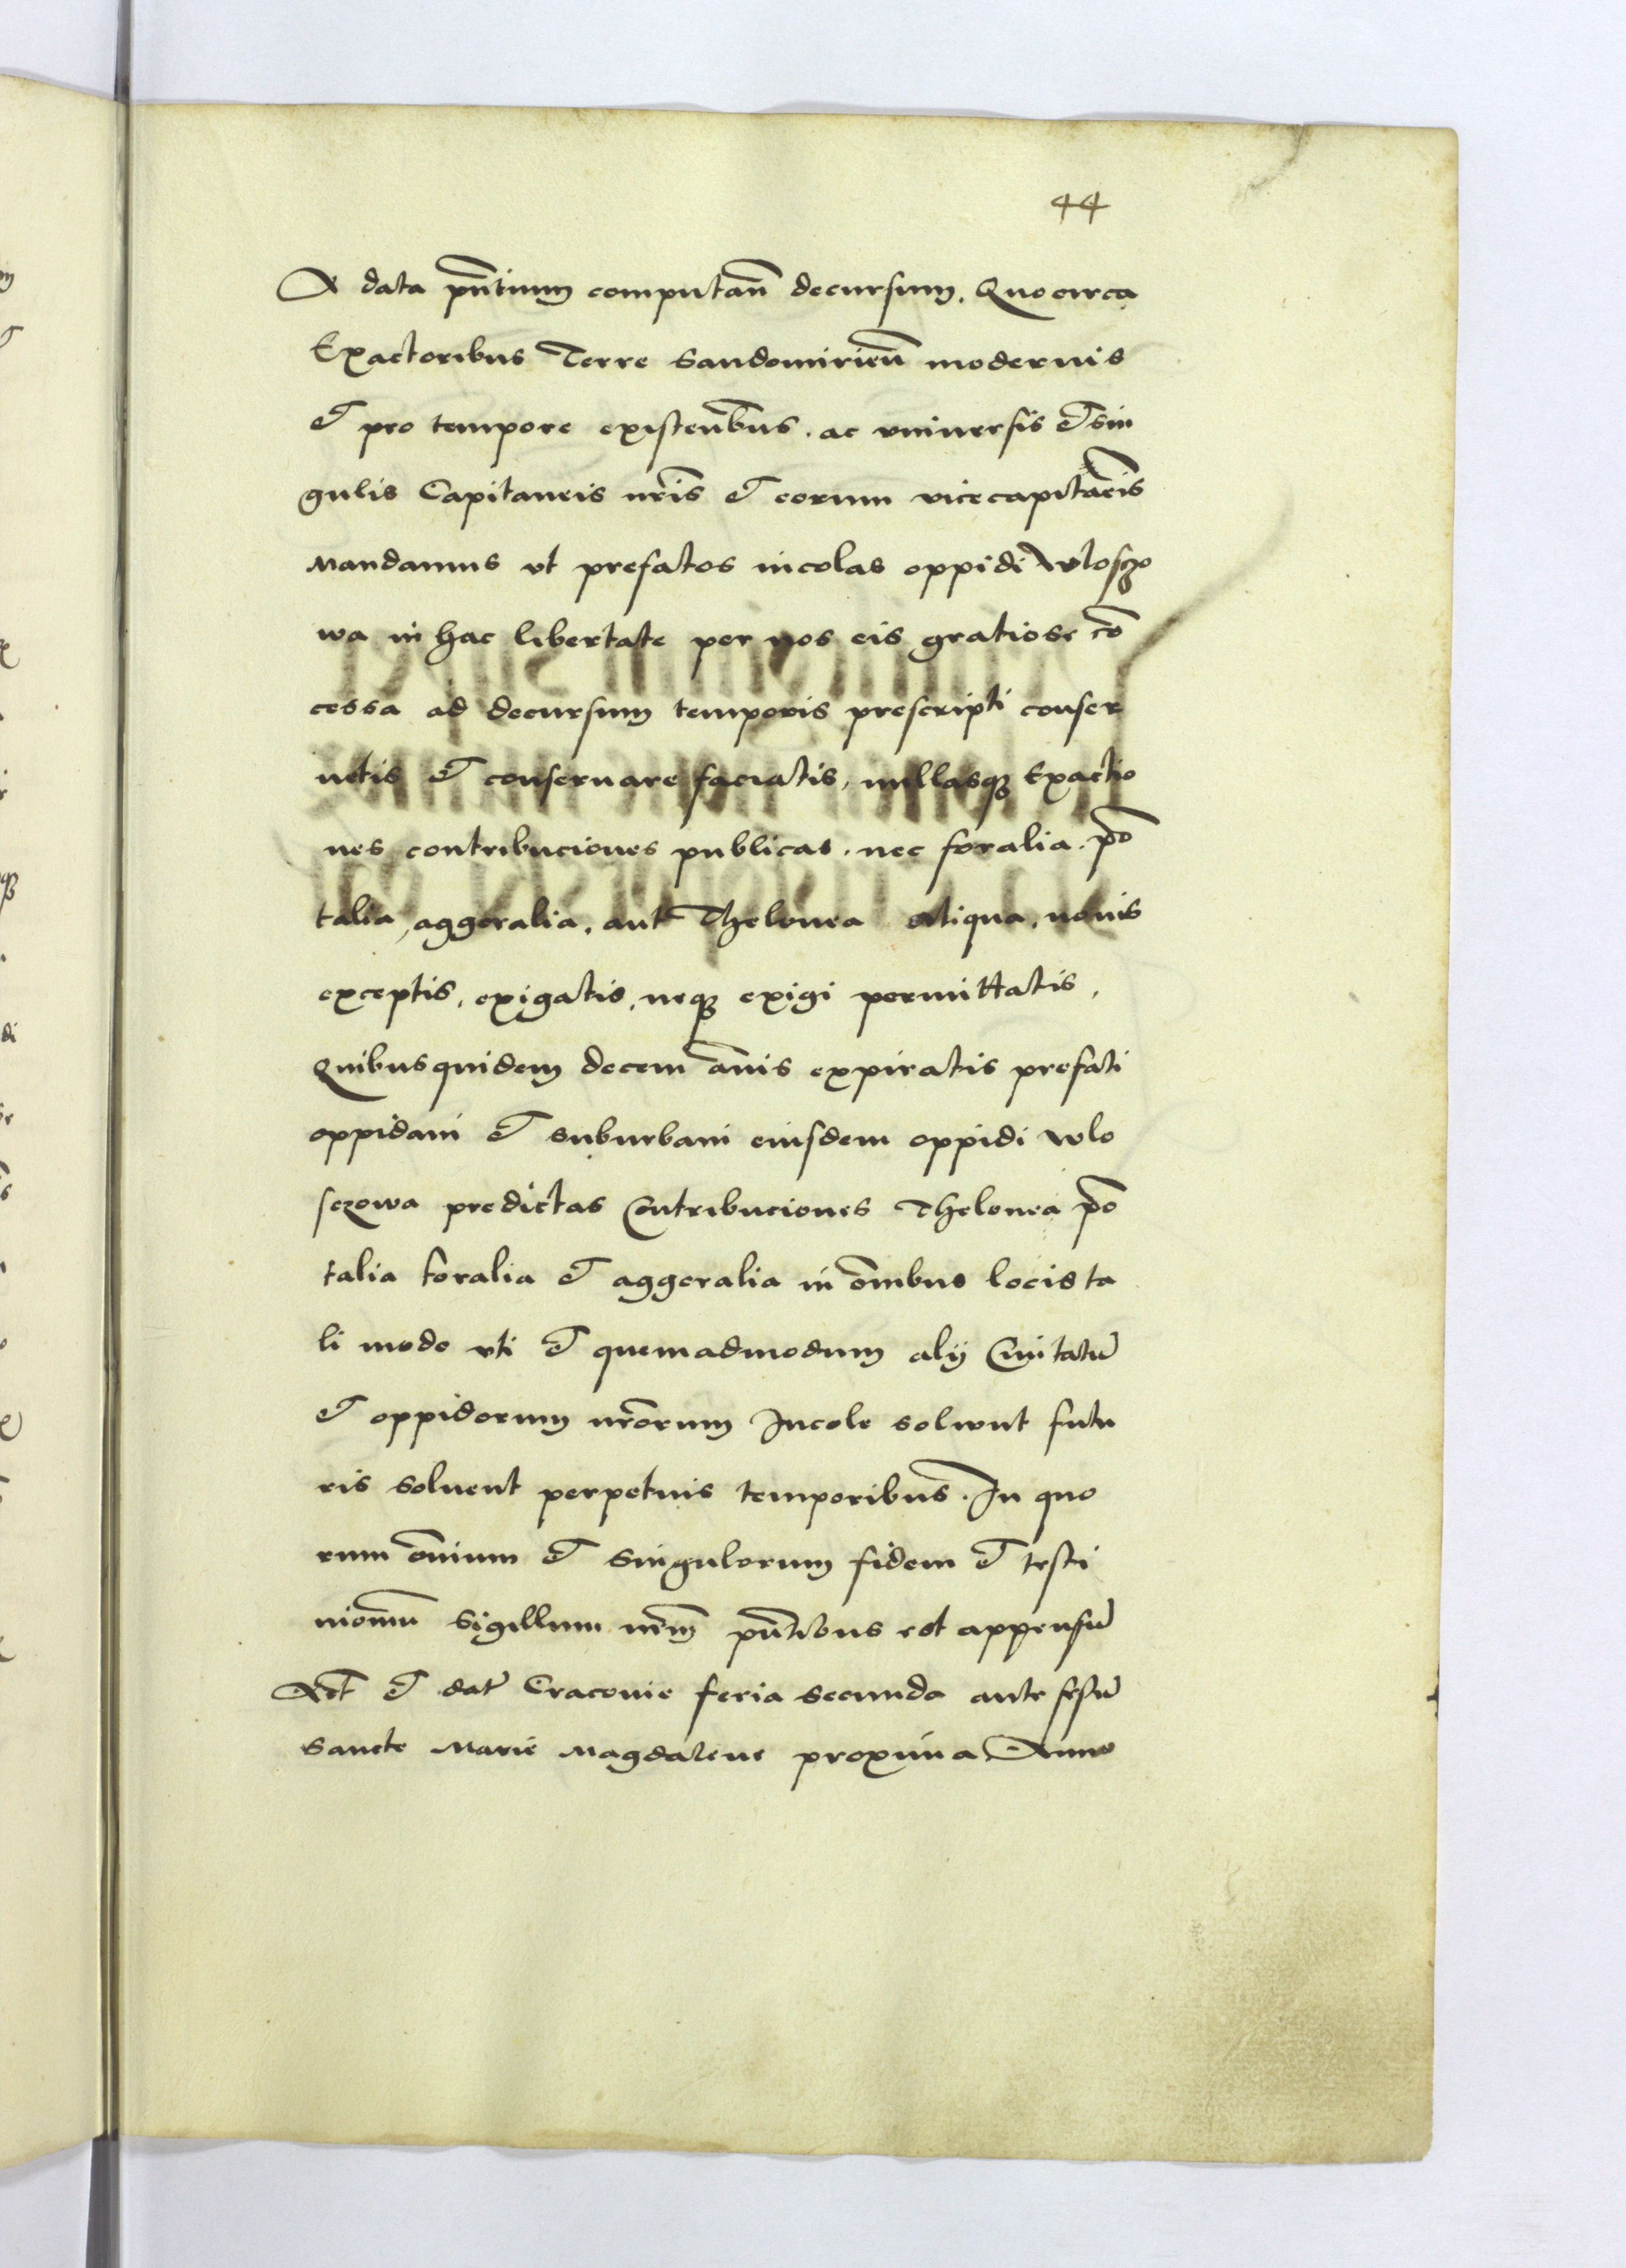 44
A data pn̄tium computan̄ decursum. Quocirca
Exactoribus Terre Sandomirien̄ modernis
et pro tempore existen̄bus. ac vniuersis et sin
gulis Capitaneis nr̄is et eorum vicecapitan̄eis
Mandamus vt prefatos incolas oppidi Wlosczo
wa in hac libertate per nos eis gratiose cō
cessa ad decursum temporis prescripti conser
uetis et conseruare faciatis, nullasq3 Exactio
nes contribuciones publicas. nec foralia. pō
talia, aggeralia, aut Thelonea aliqua, nouis
exceptis, exigatis, neq3 exigi permittatis,
Quibusquidem decem an̄is expiratis prefati
oppidani et suburbani eiusdem oppidi Wlo
sczowa predictas Contribuciones Thelonea pō
talia foralia et aggeralia in om̄ibus locis ta
li modo vti et quemadmodum alij Ciuitatū
et oppidorum nr̄orum Incole soluunt futu
ris soluent perpetuis temporibus. In quo
rum om̄ium et Singulorum fidem et testi
moniū Sigillum nr̄m pn̄tibus est appensū
Act̄ et dat̄ Cracouie feria secunda ante festū
Sancte Marie Magdalene proxima Anno